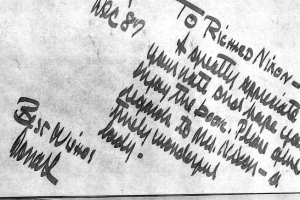 Dec 87
To Richard Nixon -
I really appreciate
your note and hope you
enjoy the book. Please give
regards to Mrs. Nixon - a
truly wonderful
lady.
Best Wishes
Donald